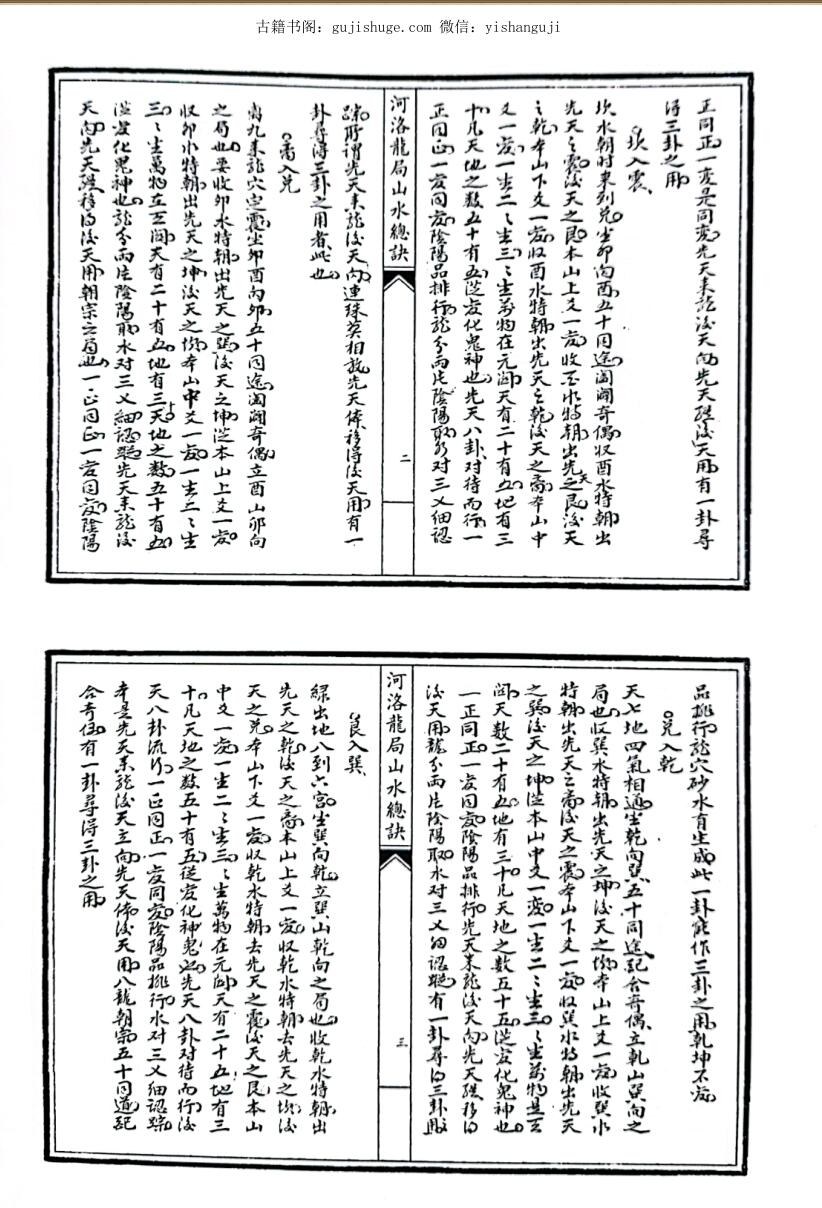 古籍书阁：gujishuge.com 微信：yishanguji
正同正一变是同变先天来龙後天向先天經後天用有一卦尋
得三卦之用
坎入震
坎水朝时来到兑坐卯向酉五十同途阖闢奇偶收酉水特朝出
先天之震後天之艮本山上爻一变收酉水特朝出先天之艮後天
之乾本山下爻一变收酉水特朝出先天之乾後天之离本山中
爻一变一生二二生三三生萬物在元阖天有二十有五地有三
十凡天地之数五十有五从变化鬼神也先天八卦对待而行一
正同正一变同变陰陽品排行龙分两片陰陽取水对三义细認
河洛龍局山水總訣
二
踪所谓先天来龙後天向連珠莫相放先天体移得後天用有一
卦尋得三卦之用者此也
离入兑
离九来龙穴定震坐卯酉向卯五十同途阖闢奇偶立酉山卯向
之局也要收卯水特朝出先天之巽後天之坤从本山上爻一变
收卯水特朝出先天之坤後天之坎本山中爻一变一生二二生
三三生萬物在元阖天有二十有五地有三天地之数五十有五
从变化鬼神也龙分两片陰陽取水对三义细認踪先天来龙後
天向先天經移得後天用朝宗之局也一正同正一变同变陰陽
品排行龙穴砂水有生成此一卦能作三卦之用乾坤不变
兑入乾
天七地四氣相通坐乾向巽五十同途配合奇偶立乾山巽向之
局也收巽水特朝出先天之坤後天之坎本山上爻一变收巽水
特朝出先天之离後天之震本山下爻一变收巽水特朝出先天
之巽後天之坤从本山中爻一变一生二二生三三生萬物是元
阖天数二十有五地有三十凡天地之数五十五从变化鬼神也
一正同正一变同变陰陽品排行先天来龙後天向先天經移得
後天用龙分两片陰陽取水对三义细認踪有一卦尋得三卦用
河洛龍局山水總訣
三
艮入巽
綠出地八到六宫坐巽向乾立巽山乾向之局也收乾水特朝出
先天之乾後天之离本山上爻一变收乾水特朝去先天之坎後
天之兑本山下爻一变收乾水特朝去先天之震後天之艮本山
中爻一变一生二二生三三生萬物在元阖天有二十五地有三
十凡天地之数五十有五從变化神鬼也先天八卦对待而行後
天八卦流行一正同正一变同变陰陽品排行水对三义细認踪
本是先天来龙後天立向先天体後天用八龍朝宗五十同道配
合奇偶有一卦尋得三卦之用